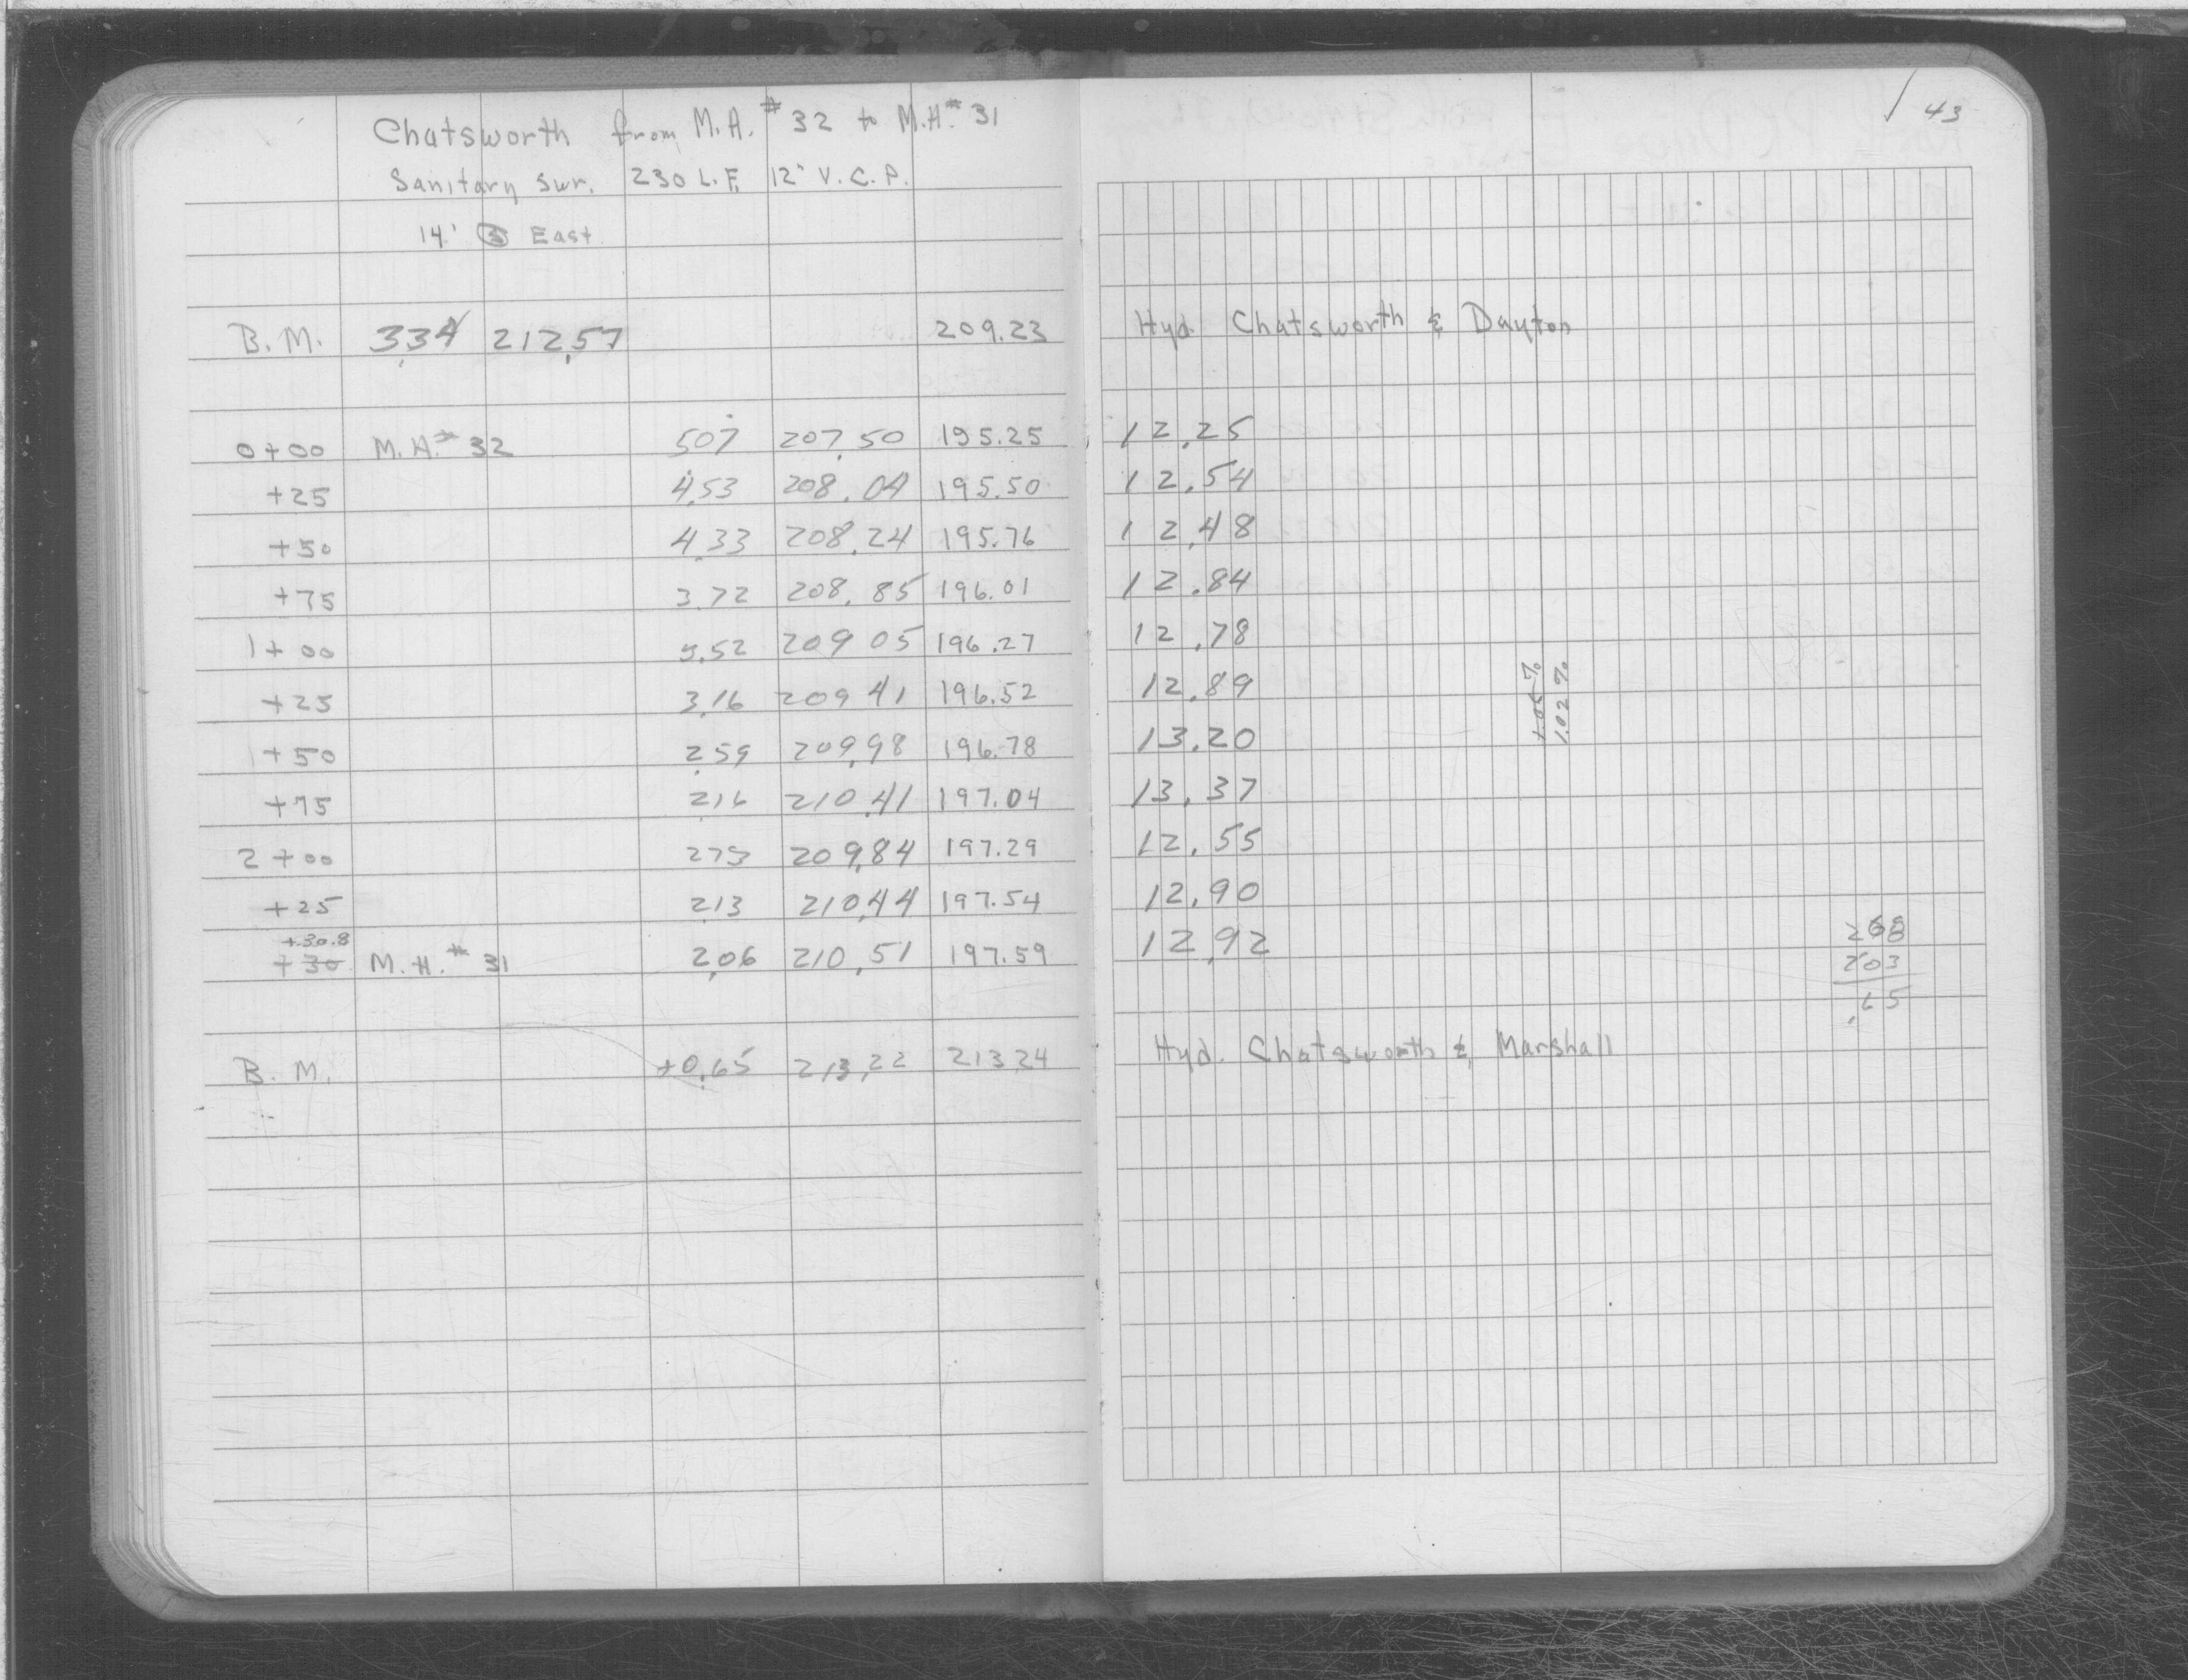 43
Chatsworth from M.H. # 32 to M.H. # 31
Sanitary Swr. 230 L.F. 12" V.C.P.
14' East
B.M. 3.34 212.57 209.23 Hyd. Chatsworth & Dayton
0+00 M.H. # 32 5.07 207.50 195.25 12.25
+25 4.53 208.04 195.50 12.54
+50 4.33 208.24 195.76 12.48
+75 3.72 208.85 196.01 12.84
1+00 3.52 209 05 196.27 12.78
+25 3.16 209 41 196.52 12.89
1+50 2.59 209.98 196.78 13.20
+75 2.16 210.41 197.04 13.37
2+00 2.73 209.84 197.29 12.55
+25 2.13 210.44 197.54 12.90
+30.8
+30 M.H. # 31 2.06 210.51 197.59 12.92
B.M. +0.65 213.22 213.24 Hyd. Chatsworth & Marshall
1.05 %
1.02 %
268
203
.65